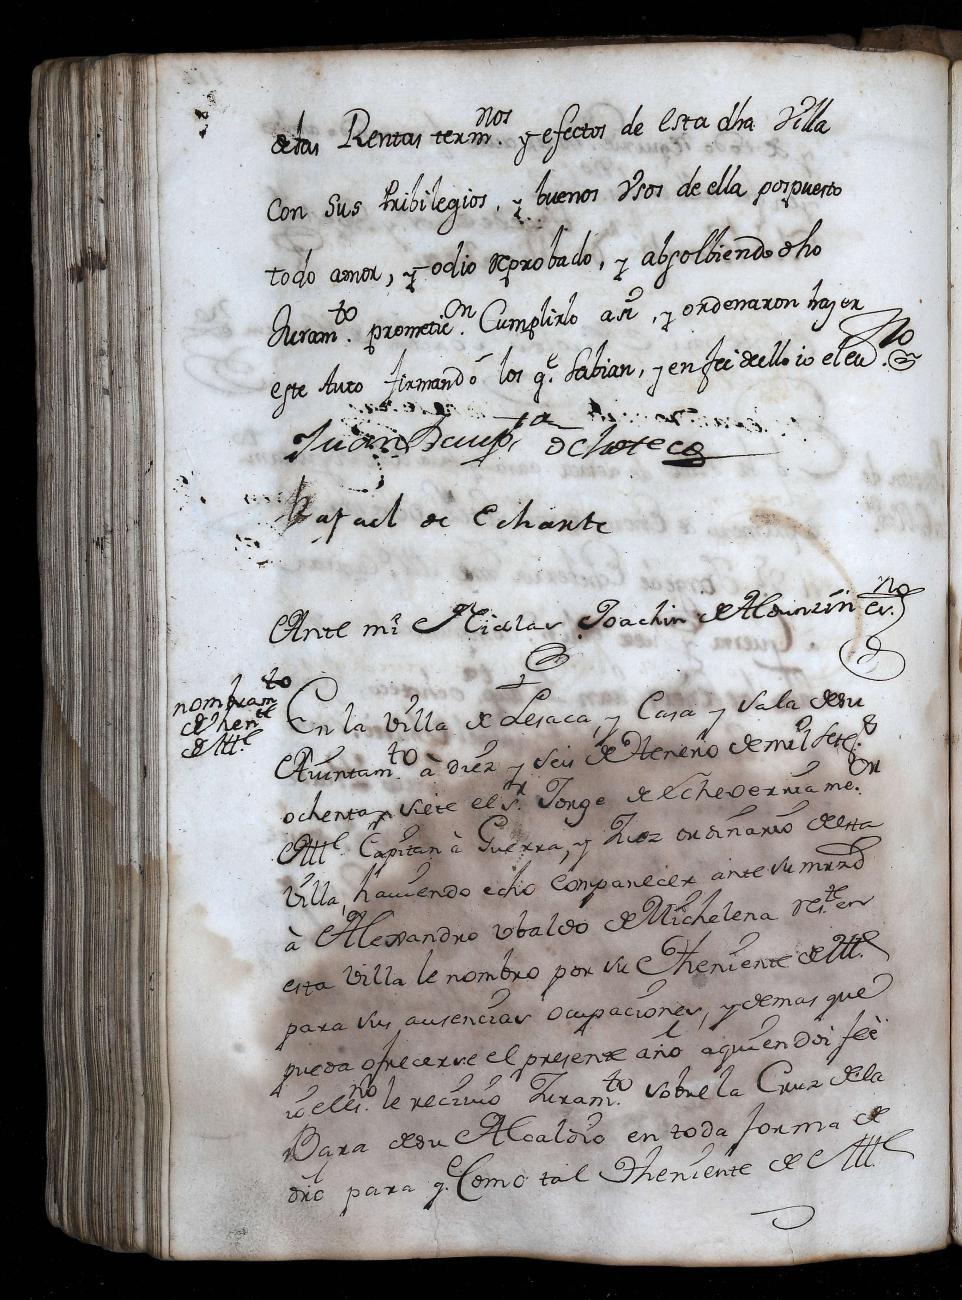 delas Rentas termnos. y efectos de esta dha Villa
Con Sus Pribilegios, y buenos Vsos de ella pospuesto
todo amor, y odio reprobado, y absolbiendo dho
Juramto. prometien. Cumplirlo asi, y ordenaron hazer
este Auto firmando los qe. sabian, y en feé de ello io el esno.
Juan Bauptta de Choteco
Rafael de Echarte
Ante mi Nicolas Joachin de Aldunzin esno.
nombramto
de Thente
de Alle
En la Villa de Lesaca, y Casa y Sala de su
Aiuntamto. à diez y seis de Henero de mil setezs.
ochenta y siete el sr. Jorge de Echeverria meor.
Alle. Capitan à Guerra, y Juez ordinario de esta
Villa, haviendo echo comparecer ante su mrzd
à Alexandro Vbaldo de Michelena reste. en
esta Villa le nombro por su Theniente de Alle.
para sus ausencias ocupaciones, y demas que
pueda ofrecerse el presente año a quien doi feé
io el esno. le recivio Juramto. sobre la Cruz de la
Bara de su Alcaldio en toda forma de
dro para qe. Como tal Theniente de Alle.